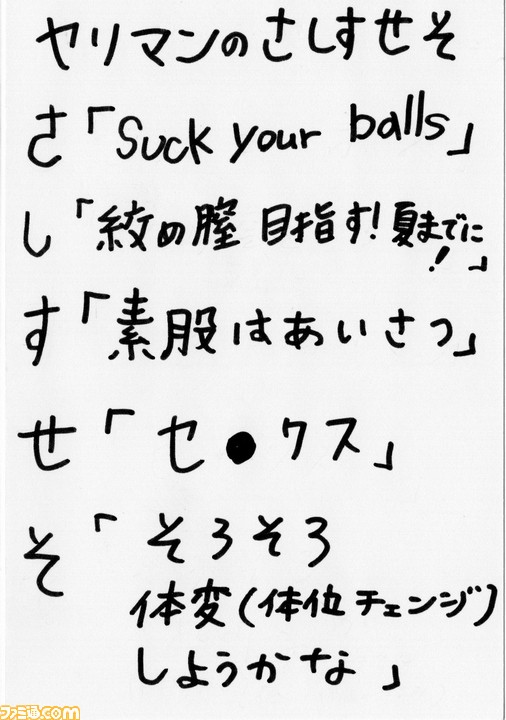 ヤリマンのさしすせそ
さ「Suck your balls」
し「絞め膣 目指す!夏までに
!」
す「素股はあいさつ」
せ「セ●クス」
そ「そろそろ
体変(体位チェンジ)
しようかな」
ファミ通.com